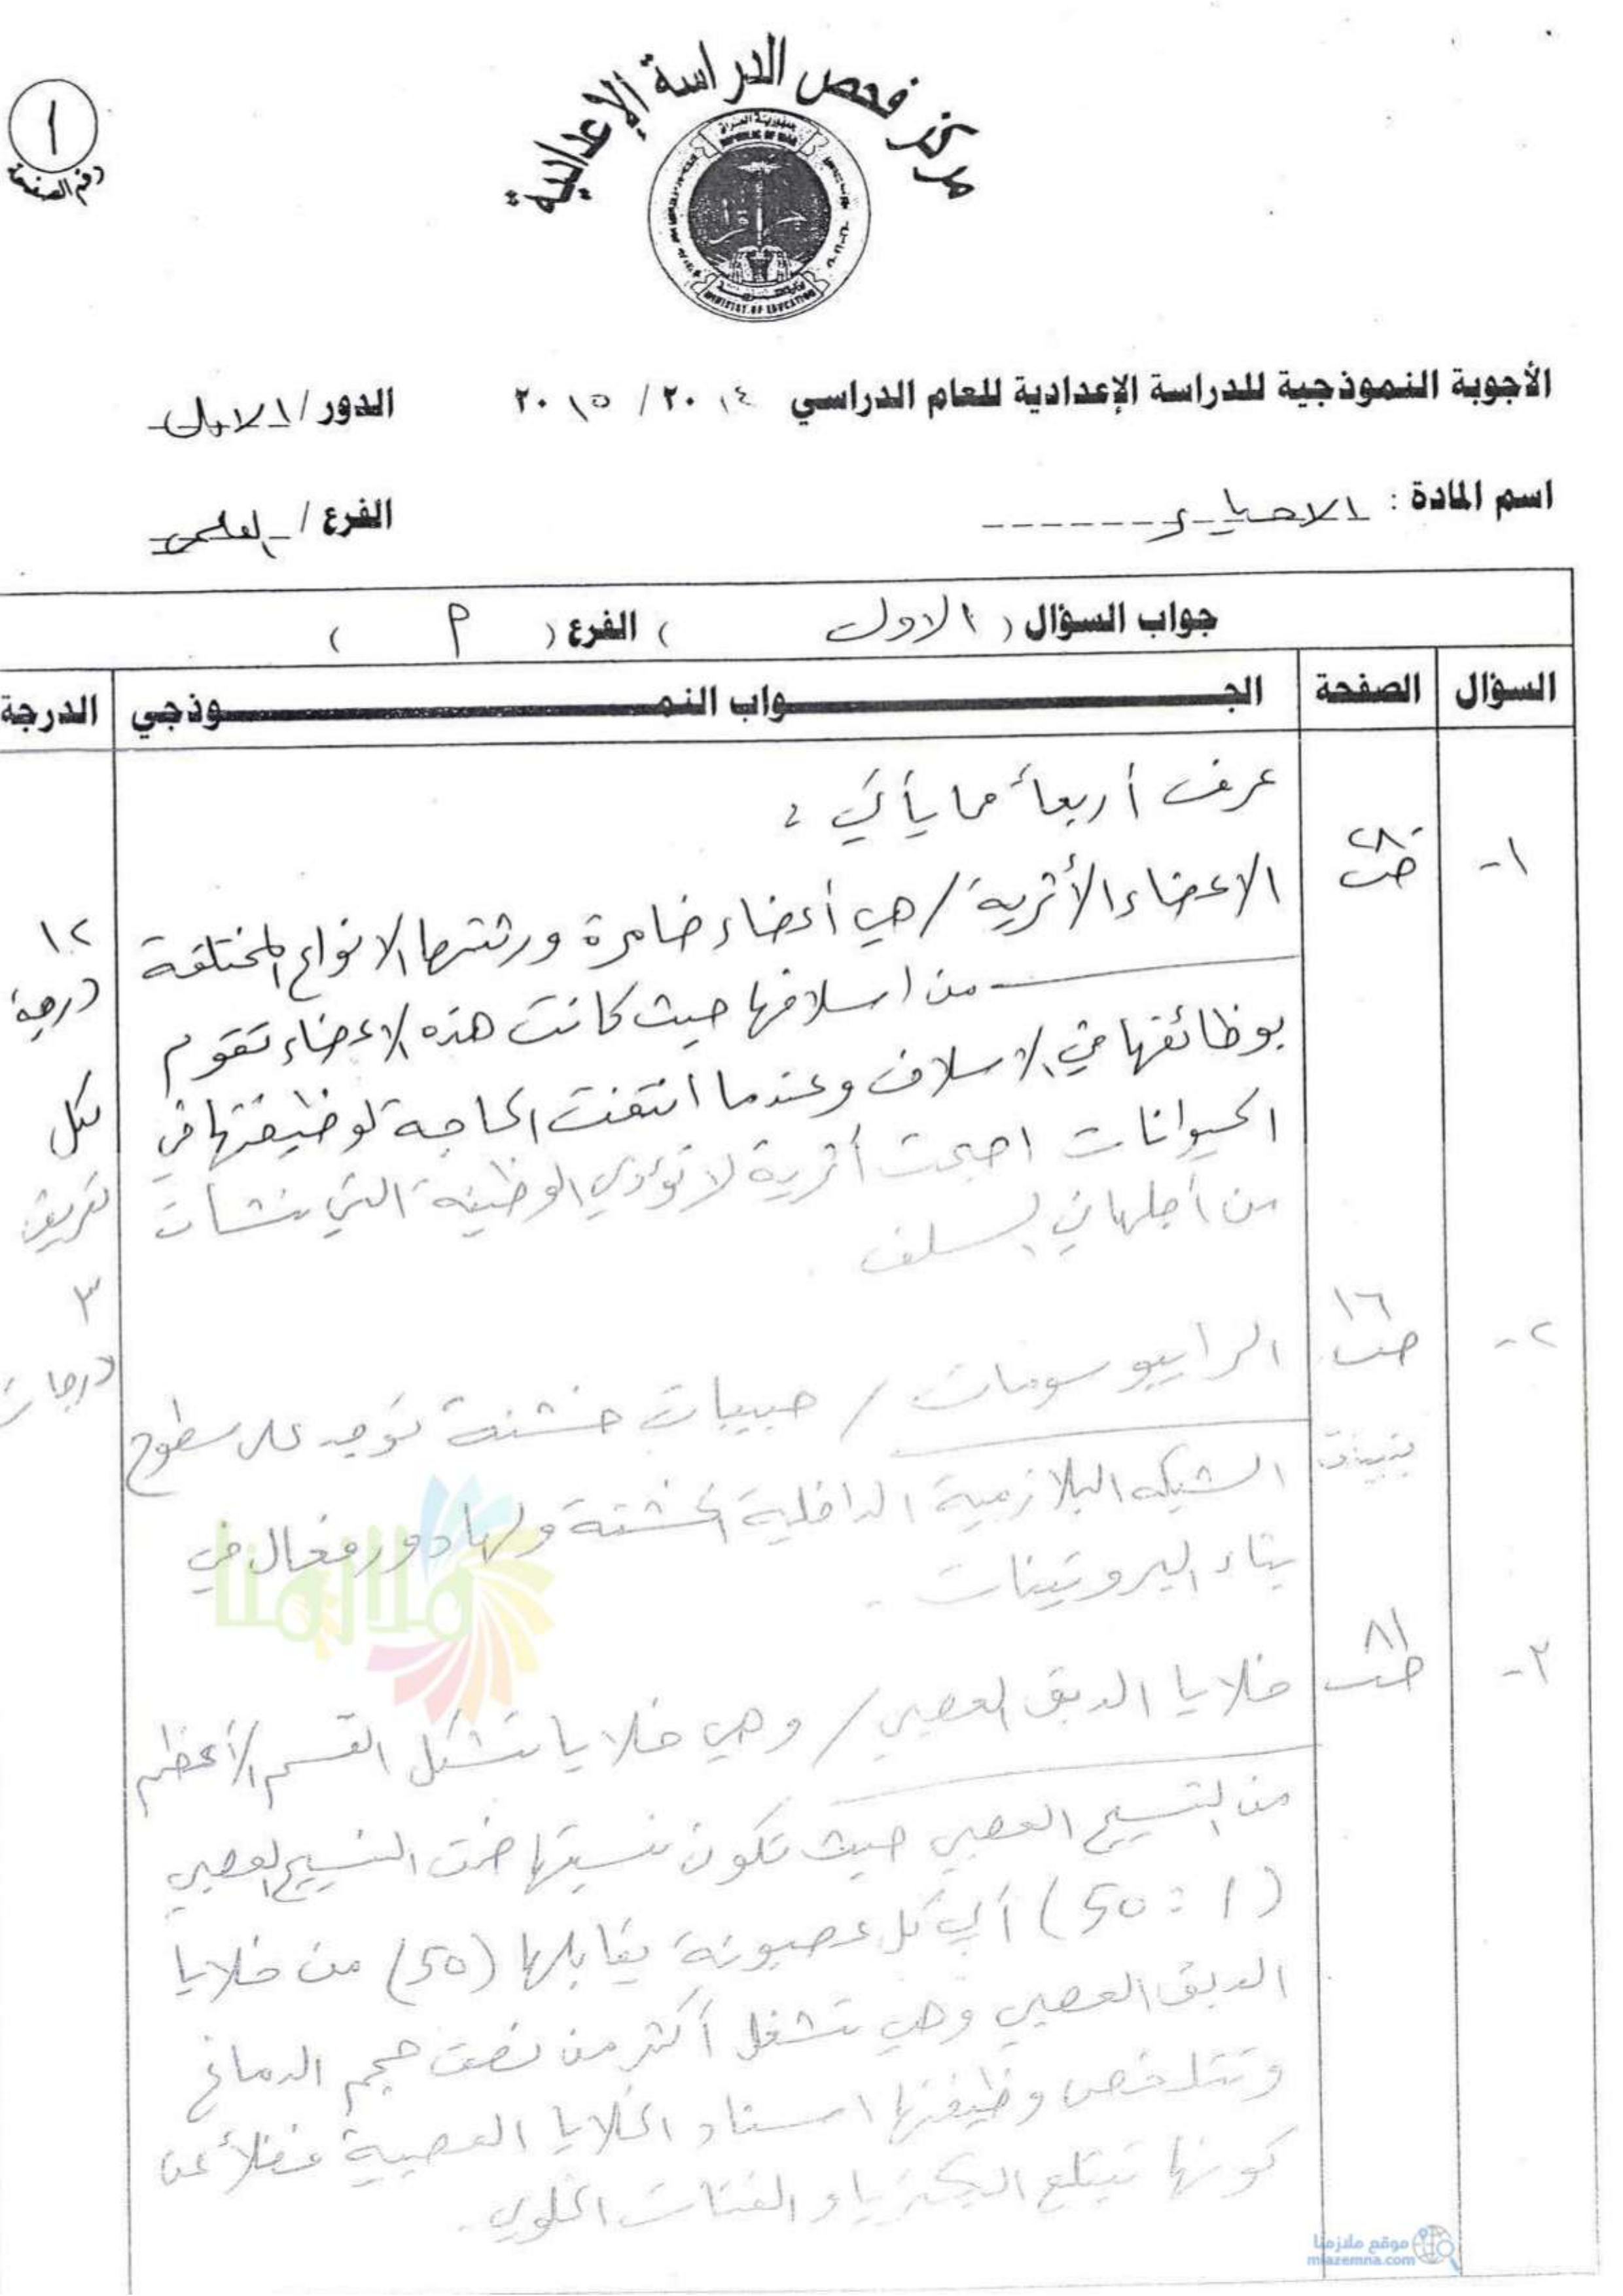 مركز فحص الدراسة الإعدادية
جمهورية العراق
REPUBLIC OF IRAQ
MINISTRY OF EDUCATION
١
رقم الصفحة
الأجوبة النموذجية للدراسة الإعدادية للعام الدراسي ٢٠١٤ / ٢٠١٥ الدور / الاول
اسم المادة : الاحياء الفرع / العلمي
جواب السؤال ( الاول ) الفرع ( م )
السؤال الصفحة الجـــواب النمـــوذجي الدرجة
عرف أربعاً مما يأتي :
١- ص٢٨ الاعضاء الأثرية / هي أعضاء ضامرة ورثتها الانواع المختلفة
من اسلافها حيث كانت هذه الاعضاء تقوم
بوظائفها في الاسلاف وعندما انتفت الحاجة لوظيفتها في
الحيوانات اصبحت أثرية لا تؤدي الوظيفة التي نشأت
من أجلها في السلف .
١٢
درجة
لكل
تعريف
٣
درجات
٢- ص١٦ الرايبوسومات / حبيبات خشنة توجد على سطوح
الشبكه البلازمية الداخلية الخشنة ولها دور فعال في
بناء البروتينات .
٣- ص٨١ خلايا الدبق العصبي / وهي خلايا تشكل القسم الأعظم
من النسيج العصبي حيث تكون نسبتها ضمن النسيج العصبي
(1 : 50) أي كل عصبونة يقابلها (50) من خلايا
الدبق العصبي وهي تشغل أكثر من نصف حجم الدماغ
وتتلخص وظيفتها اسناد الخلايا العصبية فضلاً عن
كونها تبتلع البكتريا و الفتات الخلوي .
ملازمنا
موقع ملازمنا
mlazemna.com